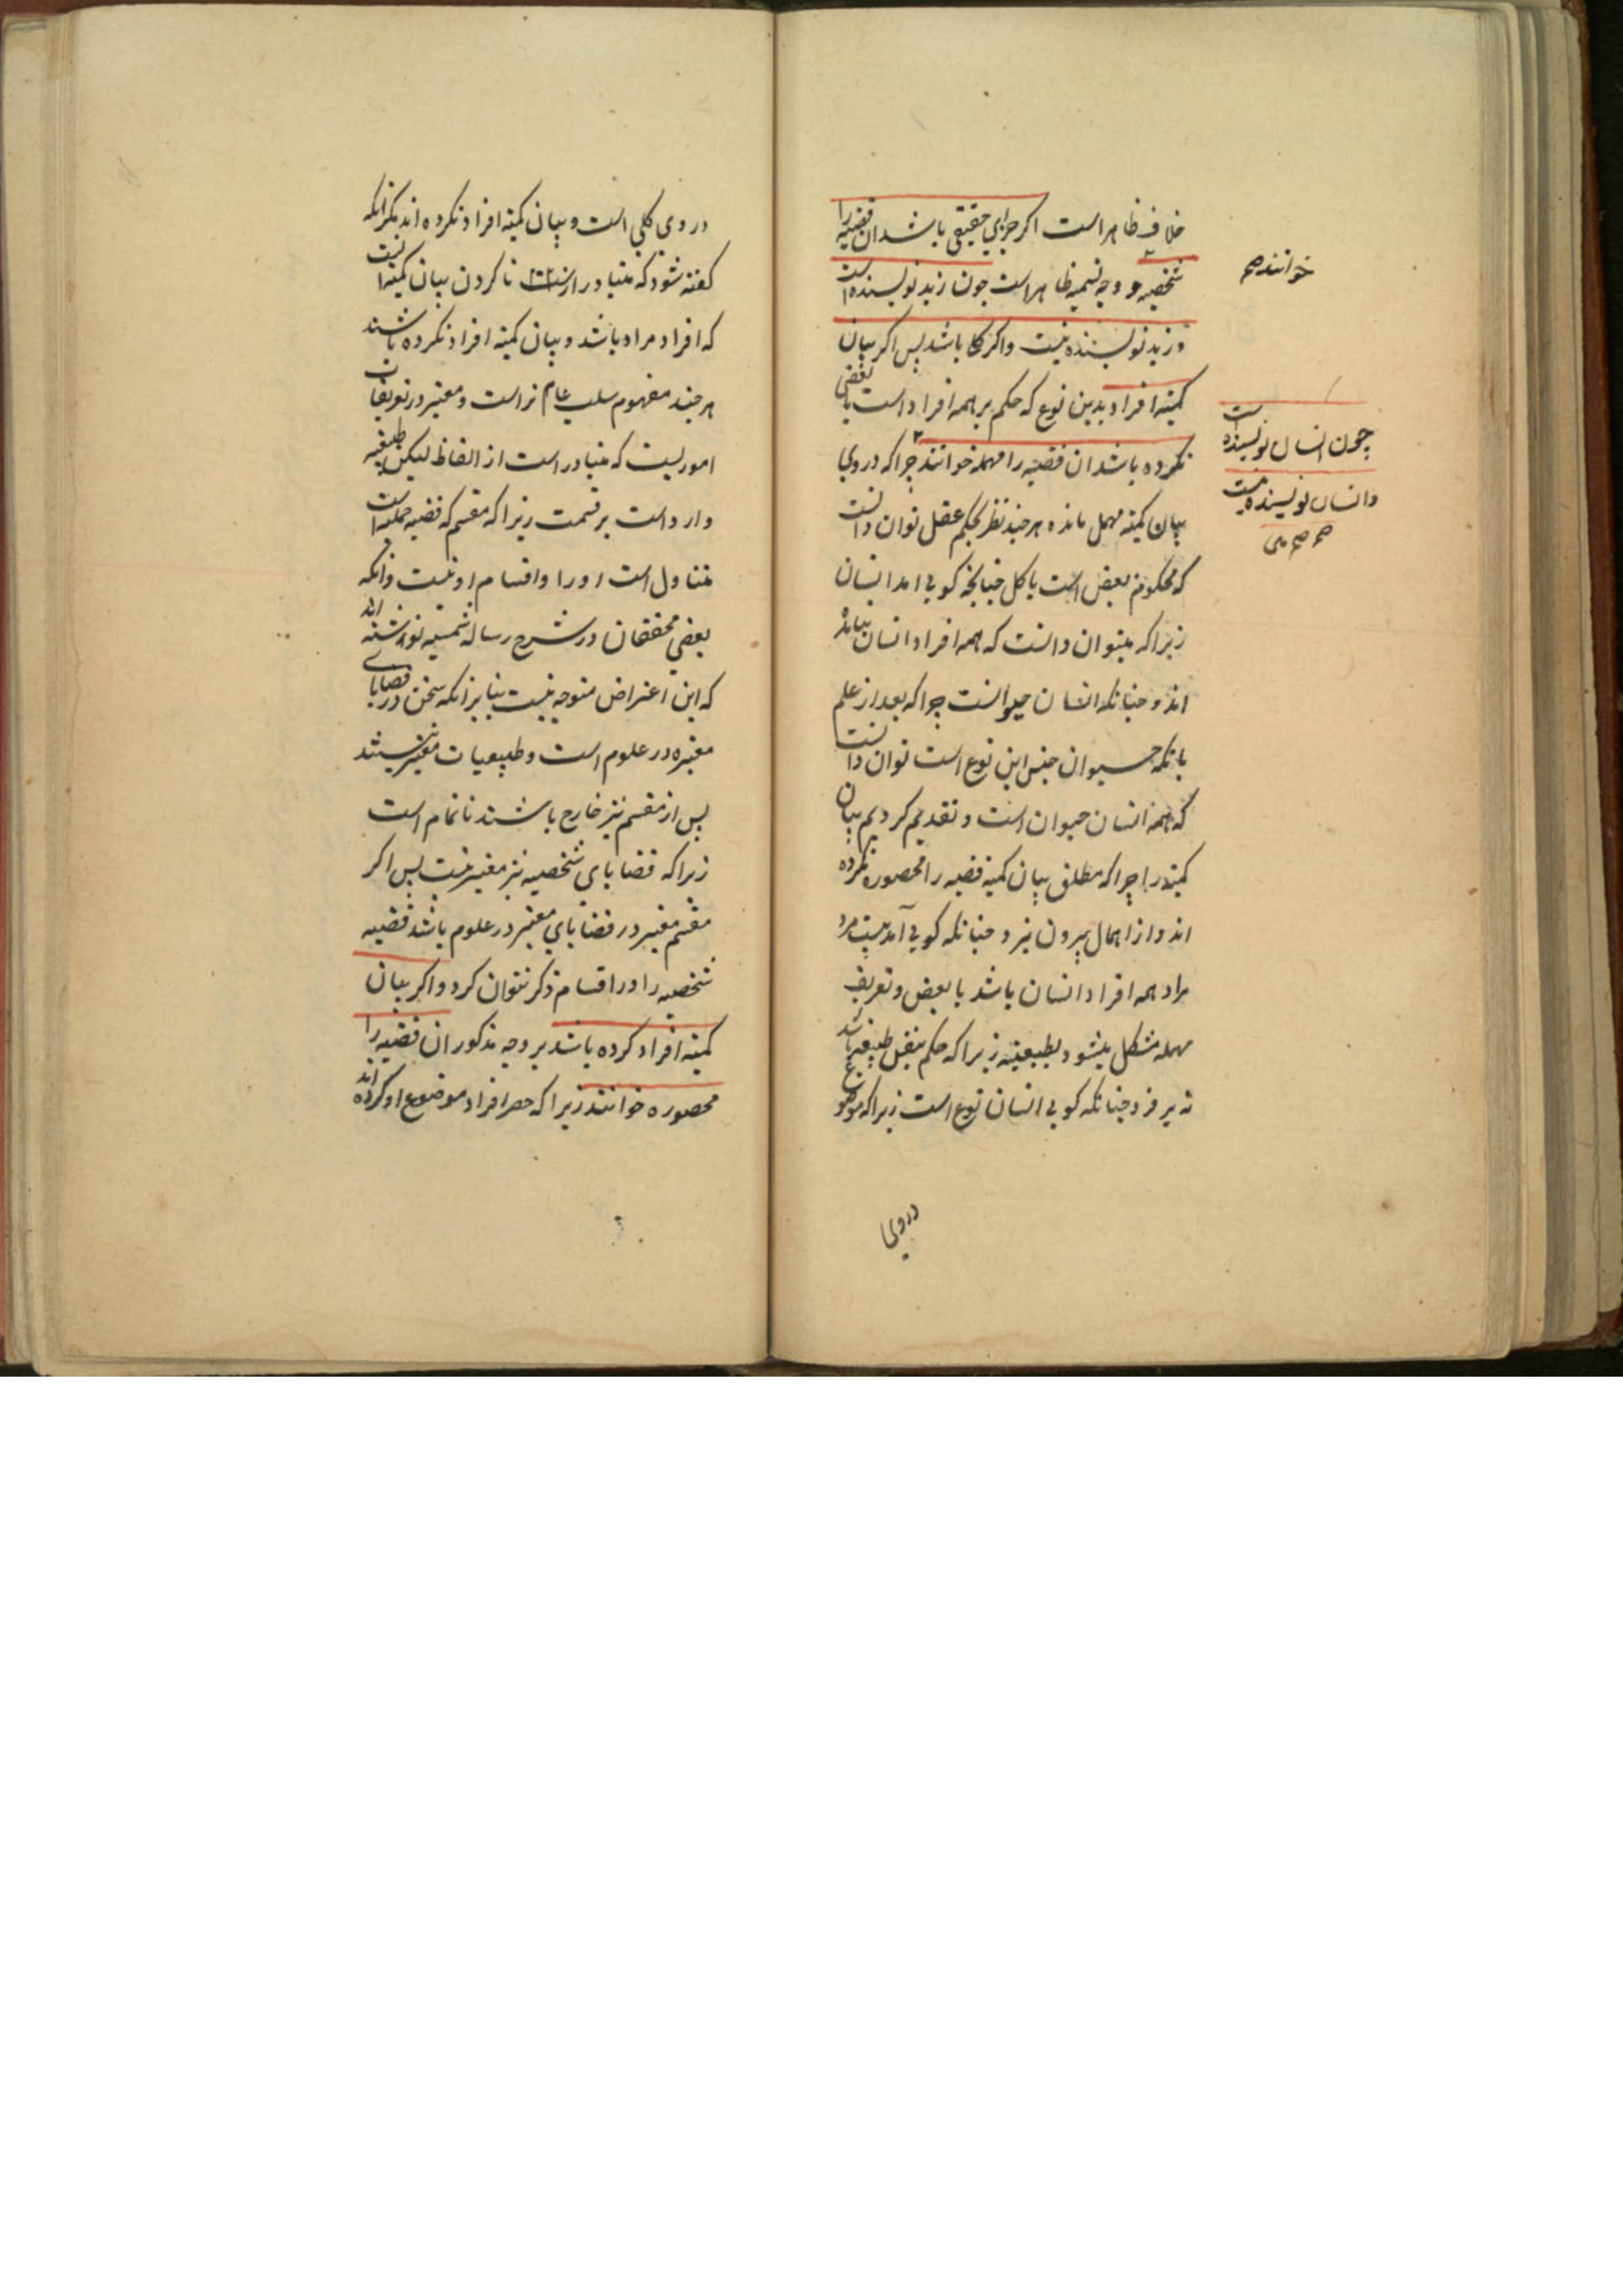 خلاف ظاهر است اکر جزای حقیقی باشد ان قضیه را
شخصیه و وجه تسمیه ظاهر است جون زید نویسنده است
و زید نویسنده نیست واکر کلی باشد پس اکر بیان
کمیته افراد بدین نوع که حکم بر همه افراد است یا بعضی
نکرده باشد ان قضیه را مهمله خوانند جراکه دروی
بیان کمیته مهمل مانده هرجند نظر بحکم عقل توان دانست
که محکوم بعض است یا کل جنانجه کویی امد انسان
زیراکه میتوان دانست که همه افراد انسان نیامده
اند و جنانکه انسان حیوانست جراکه بعد از علم
بانکه حیوان جنس این نوع است توان دانست
که همه انسان حیوان است و تقدیم کردیم بیان
کمیته را جراکه مطلق بیان کمیته قضیه را محصوره نکرده
اند و از اهمال بیرون نبرد جنانکه کویی آمد بیست مرد
مراد همه افراد انسان باشد یا بعض و تعریف
مهمله مشکل میشود بطبیعیه زیراکه حکم بنفس طبیعیه باشد
نه بر فرد جنانکه کویی انسان نوع است زیراکه موضوع
دروی
خوانند صح
چون انسان نویسنده است
و انسان نویسنده نیست
صح صح
دروی کلی است و بیان کمیته افراد نکرده اند مکر انکه
کفته شود که متبادر از نا کردن بیان کمیته انست
که افراد مراد باشد و بیان کمیته افراد نکرده باشند
هرجند مفهوم سلب عام تر است و معتبر در تعریفات
اموریست که متبادر است از الفاظ لیکن طبیعیه
وارد است بر قسمت زیراکه مقسم که قضیه حملیه است
متناول است او را و اقسام او نیست وانکه
بعضی محققان در شرح رساله شمسیه نوشته اند
که این اعتراض متوجه نیست بنابر انکه سخن در قضایای
معتبره در علوم است و طبیعیات معتبر نیستند
پس از مقسم نیز خارج باشند ناتمام است
زیراکه قضایای شخصیه نیز معتبر نیست پس اکر
مقسم معتبر در قضایای معتبر در علوم باشد قضیه
شخصیه را در اقسام ذکر نتوان کرد و اکر بیان
کمیته افراد کرده باشد بر وجه مذکور ان قضیه را
محصوره خوانند زیراکه حصر افراد موضوع او کرده اند